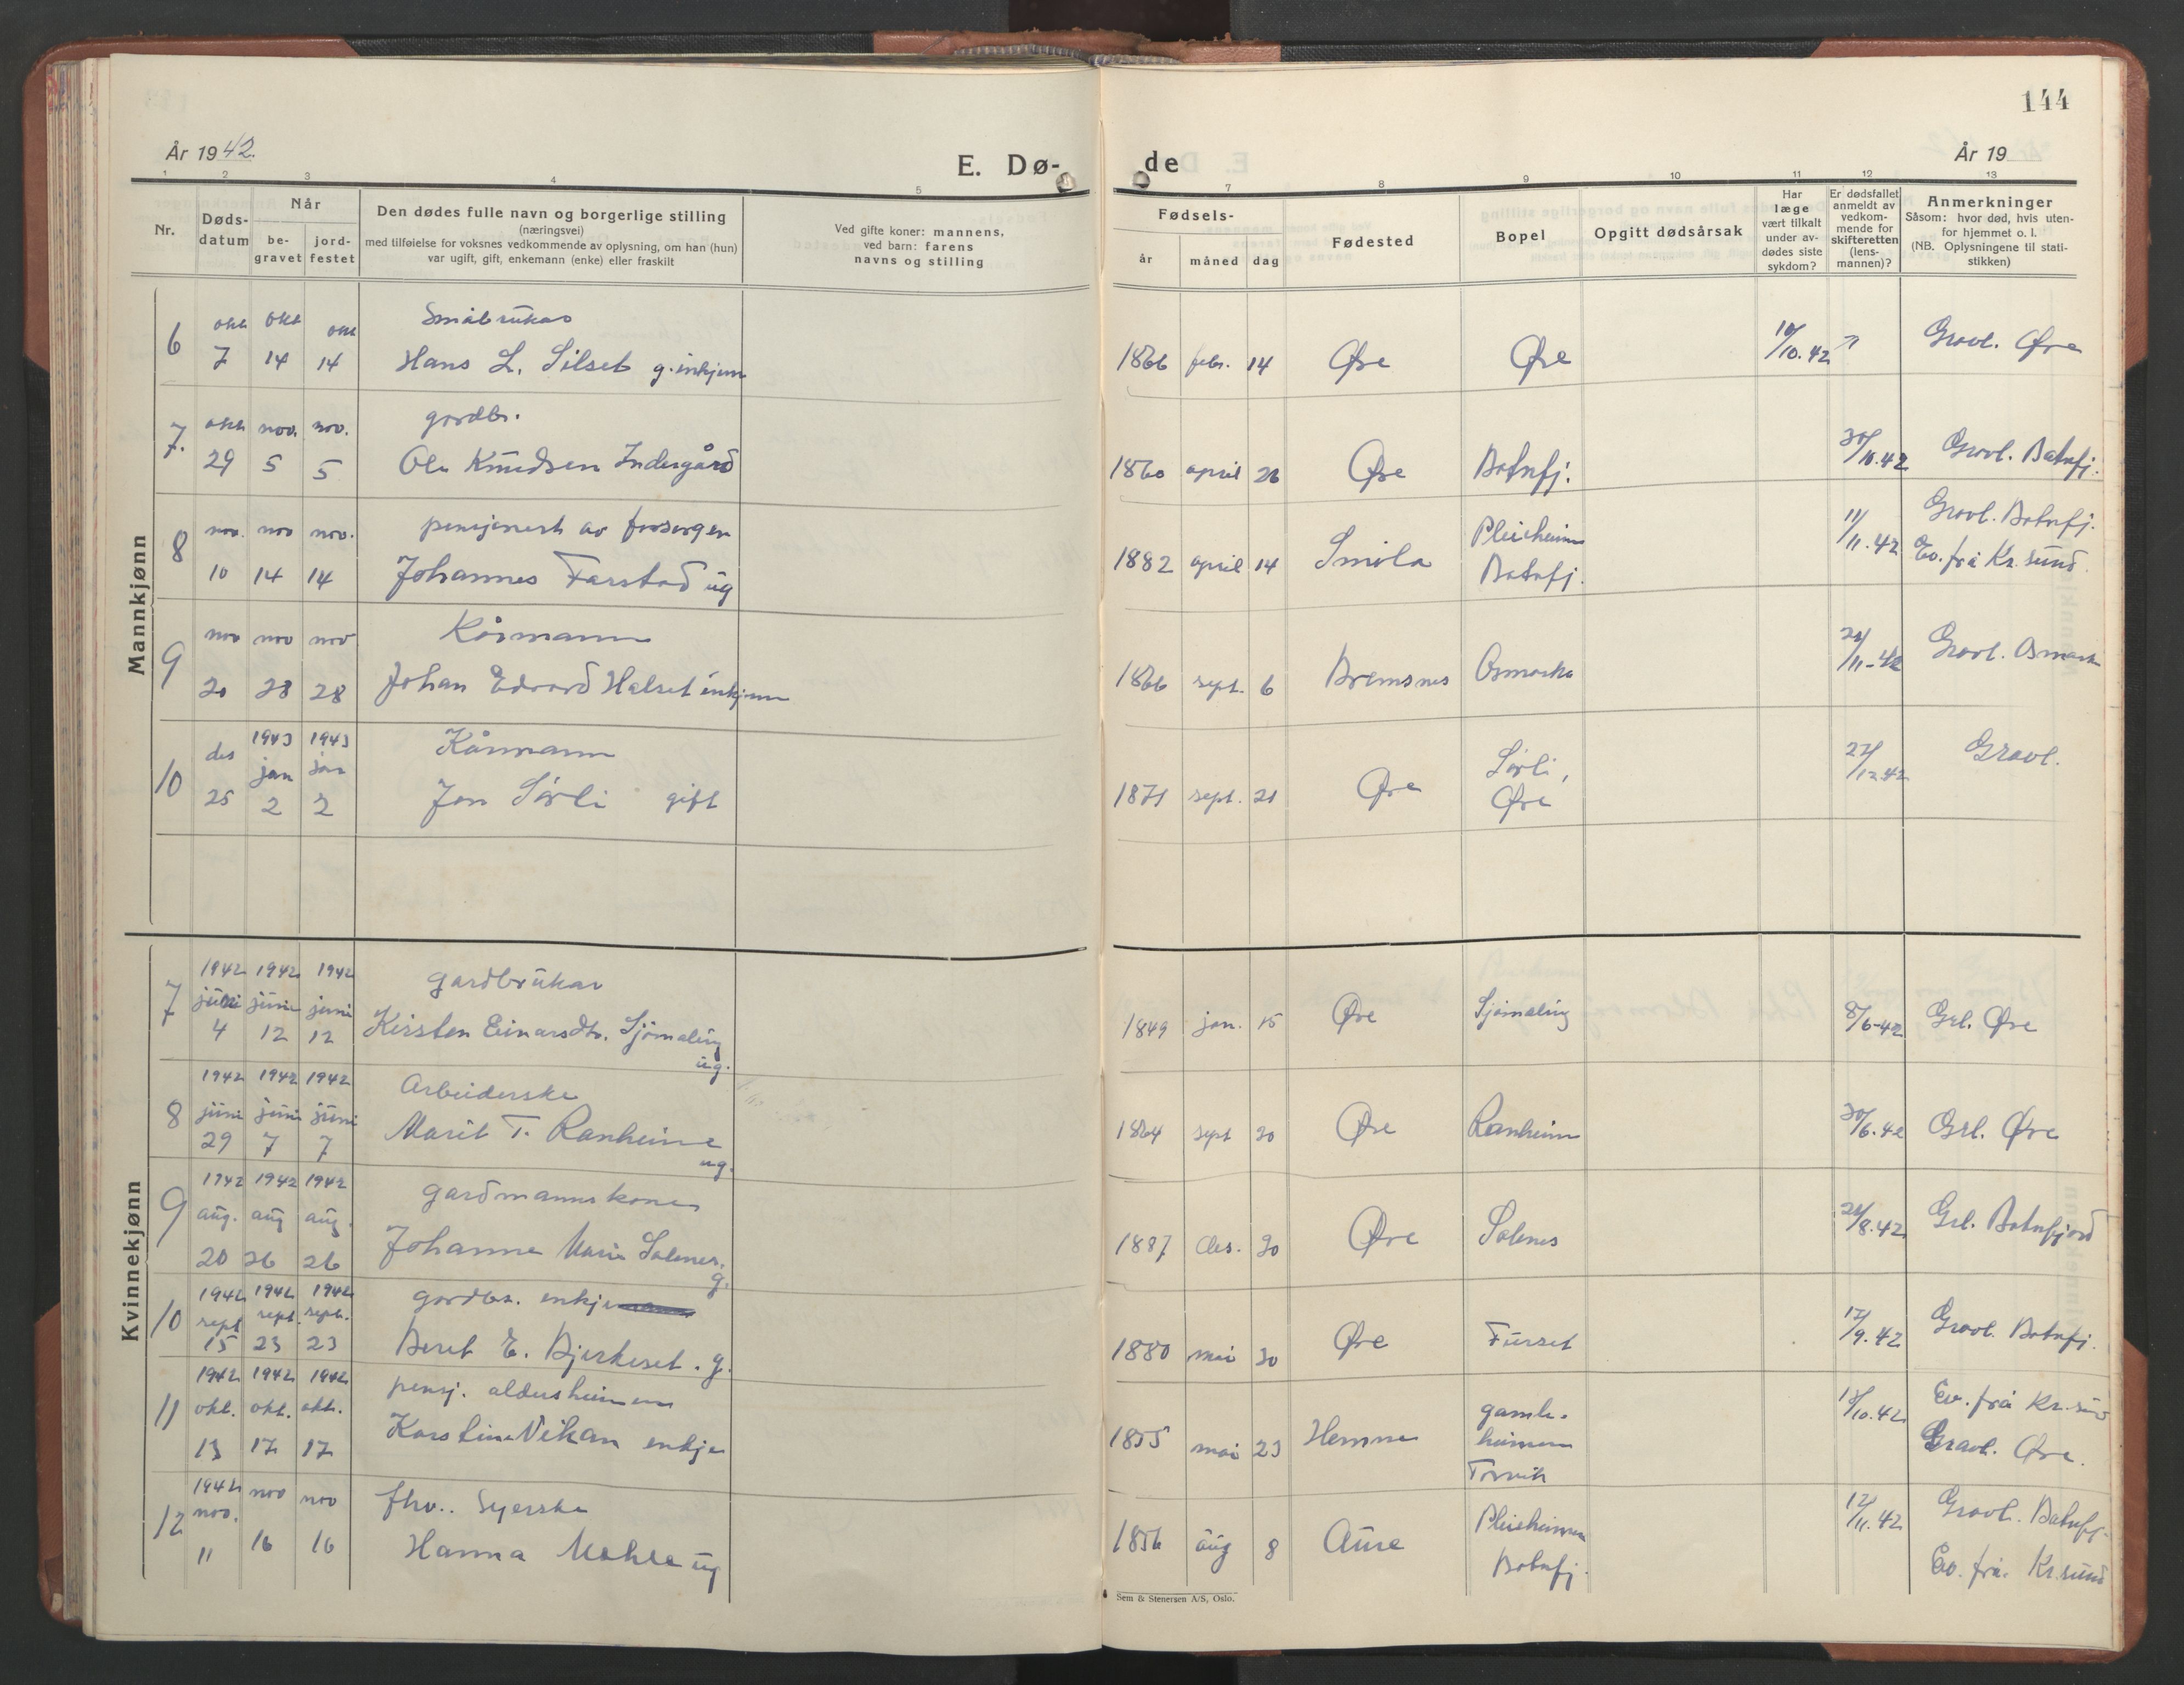 144
År 1942.
E. Dø-
de
År 19
1 2 3 4 5 7 8 9 10 11 12 13
Nr.
Døds-
datum
Når
be-
gravet
jord-
festet
Den dødes fulle navn og borgerlige stilling
(næringsvei)
med tilføielse for voksnes vedkommende av oplysning, om han (hun)
var ugift, gift, enkemann (enke) eller fraskilt
Ved gifte koner: mannens,
ved barn: farens
navns og stilling
Fødsels-
år måned dag
Fødested
Bopel
Opgitt dødsårsak
Har
læge
vært tilkalt
under av-
dødes siste
sykdom?
Er dødsfallet
anmeldt av
vedkom-
mende for
skifteretten
(lens-
mannen)?
Anmerkninger
Såsom: hvor død, hvis uten-
for hjemmet o. l.
(NB. Oplysningene til stati-
stikken)
Mannkjønn
okt okt okt Småbrukar
6 7 14 14 Hans L. Silset g. 1866 febr. 14 Øre Øre 10/10.42 Gravl. Øre
okt. nov. nov. gardbr.
7. 29 5 5 Ole Knudsen Indergård 1860 april 26 Øre Botnfj. 30/10.42 Gravl. Batnfj.
nov. nov nov. pensjonert av forsorgen Pleieheimen Gravl. Botnfj.
8 10 14 14 Johannes Farstad ug 1882 april 14 Smøla Batnfj. 11/11.42 Ev. frå Kr.sund.
nov nov nov Kårmann
9 20 28 28 Johan Edvard Halset 1866 sept. 6 Bremsnes Osmarka 24/11-42 Gravl. Osmark
des 1943 jan 1943 jan Kårmann Sørli,
10 25 2 2 Jon Sørli gift 1871 sept. 21 Øre Øre 27/12 42 Gravl.
Kvinnekjønn
1942 1942 1942 gardbrukar
7 juni juni juni
4 12 12 Kirsten Einarsdtr. Sjømæling ug. 1849 jan. 15 Øre Sjømæling 8/6-42 Grl. Øre
1942 1942 1942 Arbeiderske
8 juni juni juni
29 7 7 Marit T. Ranheim ug. 1864 sept 20 Øre Ranheim 30/6.42 Grl. Øre
1942 1942 1942 gardmannskone
9 aug. aug aug.
20 26 26 Johanne Marie Solenes. g. 1887 des. 30 Øre Solenes 21/8.42 Grl. Botnfjord
1942 1942 1942 gardbr. enkje
10 sept sept. sept.
15 23 23 Beret E. Bjerkeset. g. 1880 mai 30 Øre Furset 17/9.42 Gravl. Botnfj.
1942 1942 1942 pensj. aldersheimen gamle- Ev. frå Kr.sund
11 okt. okt. okt. heimen
13 17 17 Karstine Vikan enkje 1855 mai 23 Hemne Torvik 13/10.42 Gravl. Øre.
1942 nov nov fhv. Syerske Pleieheimen Gravl. Batnfj.
12 nov.
11 16 16 Hanna ug 1856 aug 8 Aure Botnfj. 12/11.42 Ev. frå Kr.sund
Sem & Stenersen A/S, Oslo.